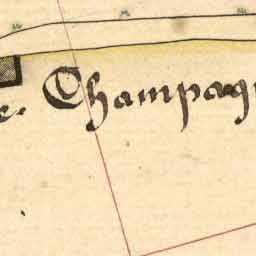 e. Champaq